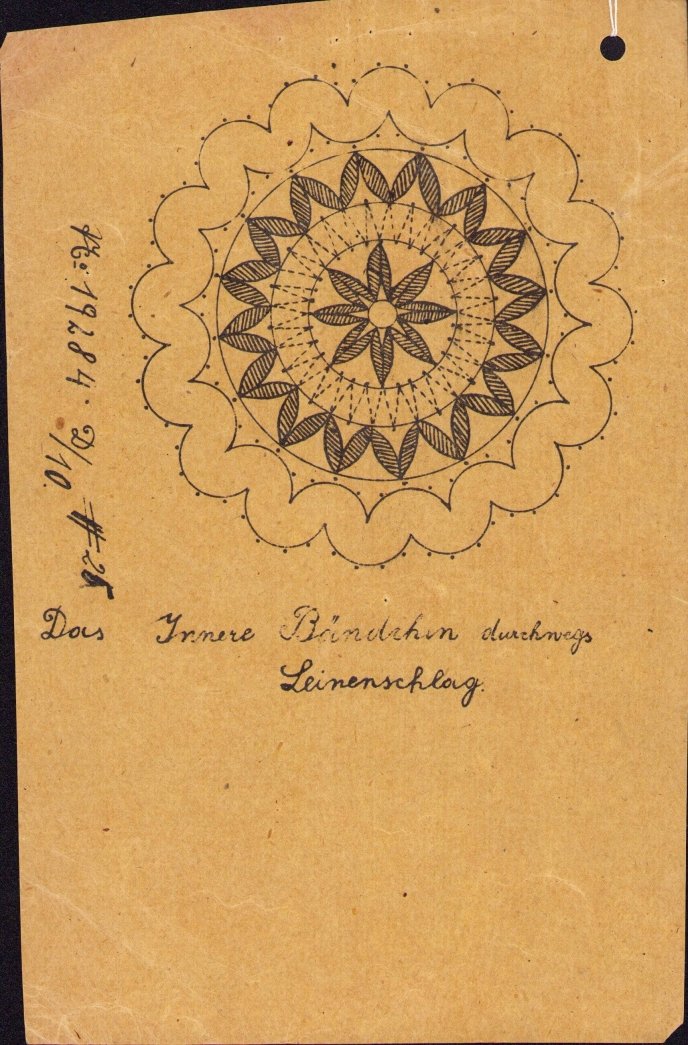 No 19284. D/10 # 26
Das Innere Bändchen durchwegs
Leinenschlag.